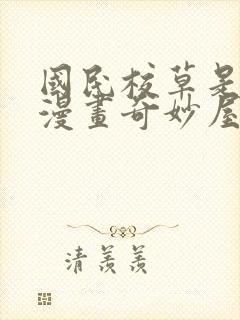 國民校草是
漫畫奇妙屋
清羨羨